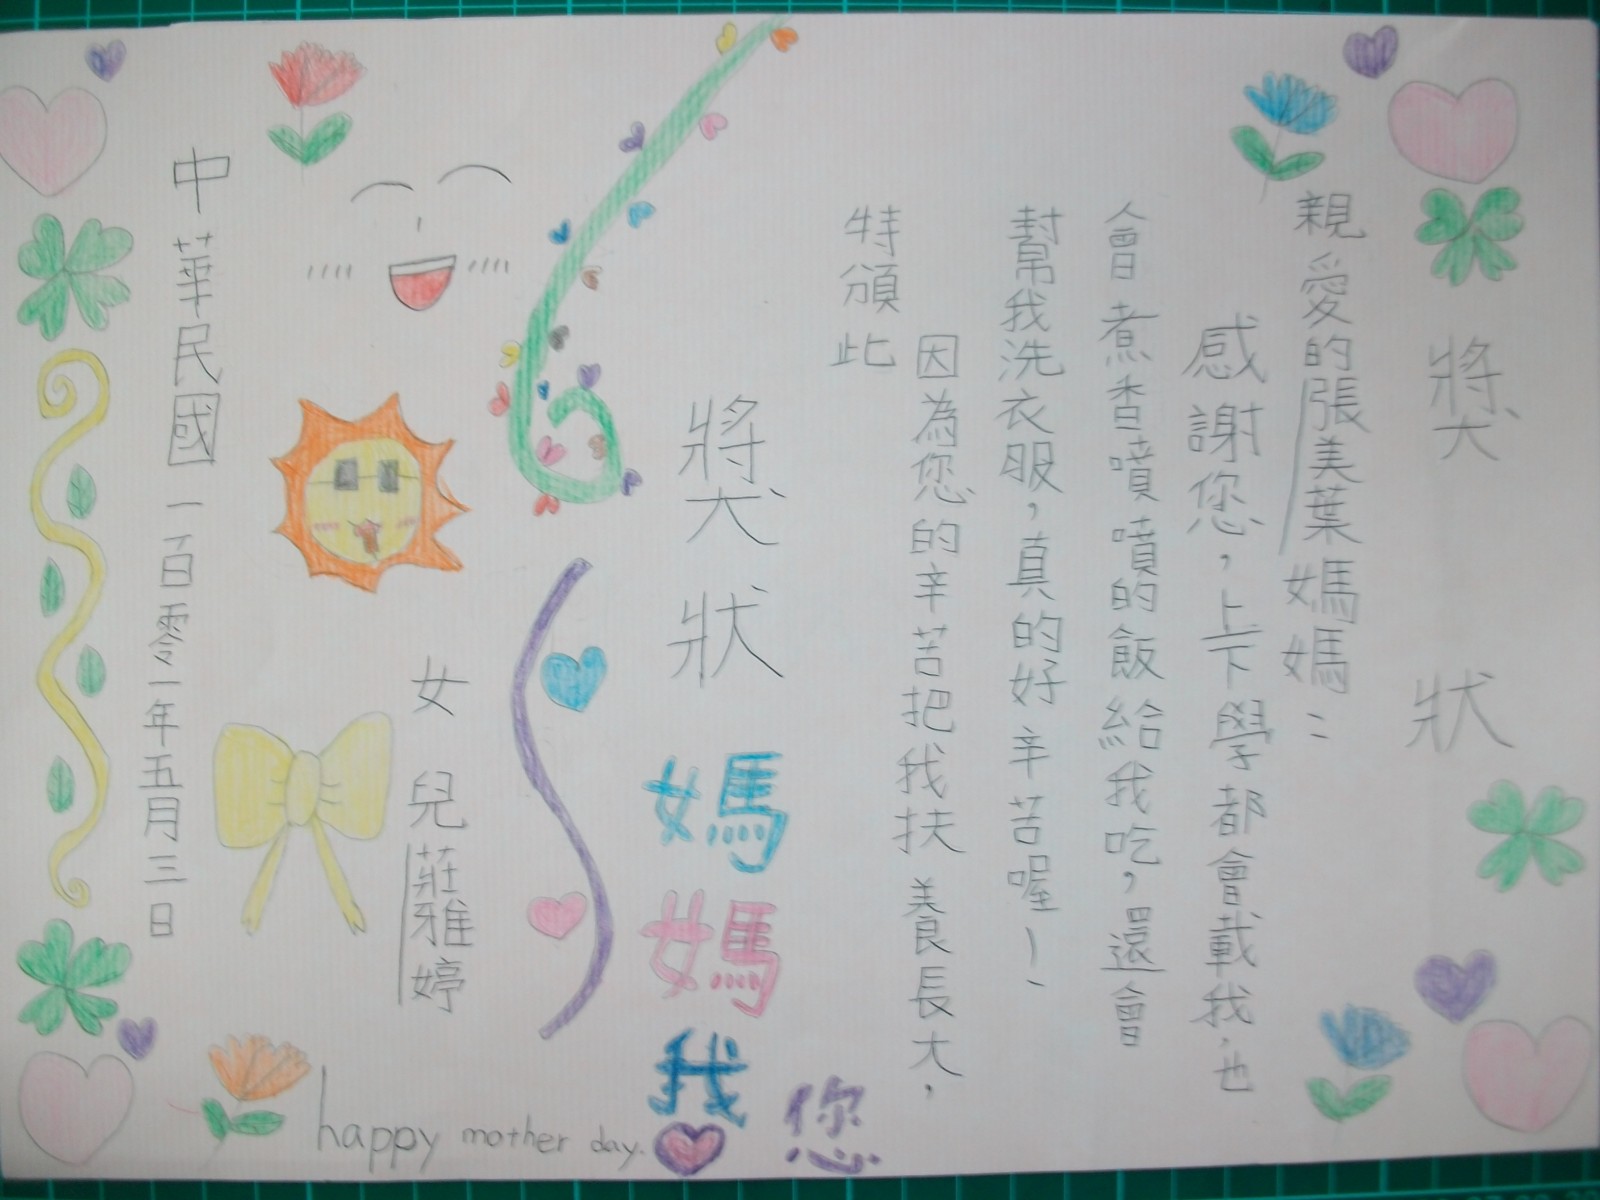 獎狀
親愛的張美葉媽媽：
感謝您，上下學都會載我，也
會煮香噴噴的飯給我吃，還會
幫我洗衣服，真的好辛苦喔～
因為您的辛苦把我扶養長大，
特頒此
獎狀
媽媽我您
女兒莊雅婷
中華民國一百零一年五月三日
happy mother day.